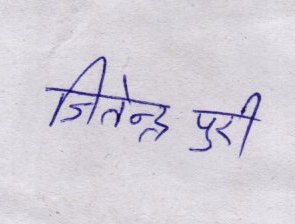 जितेन्द्र पुरी